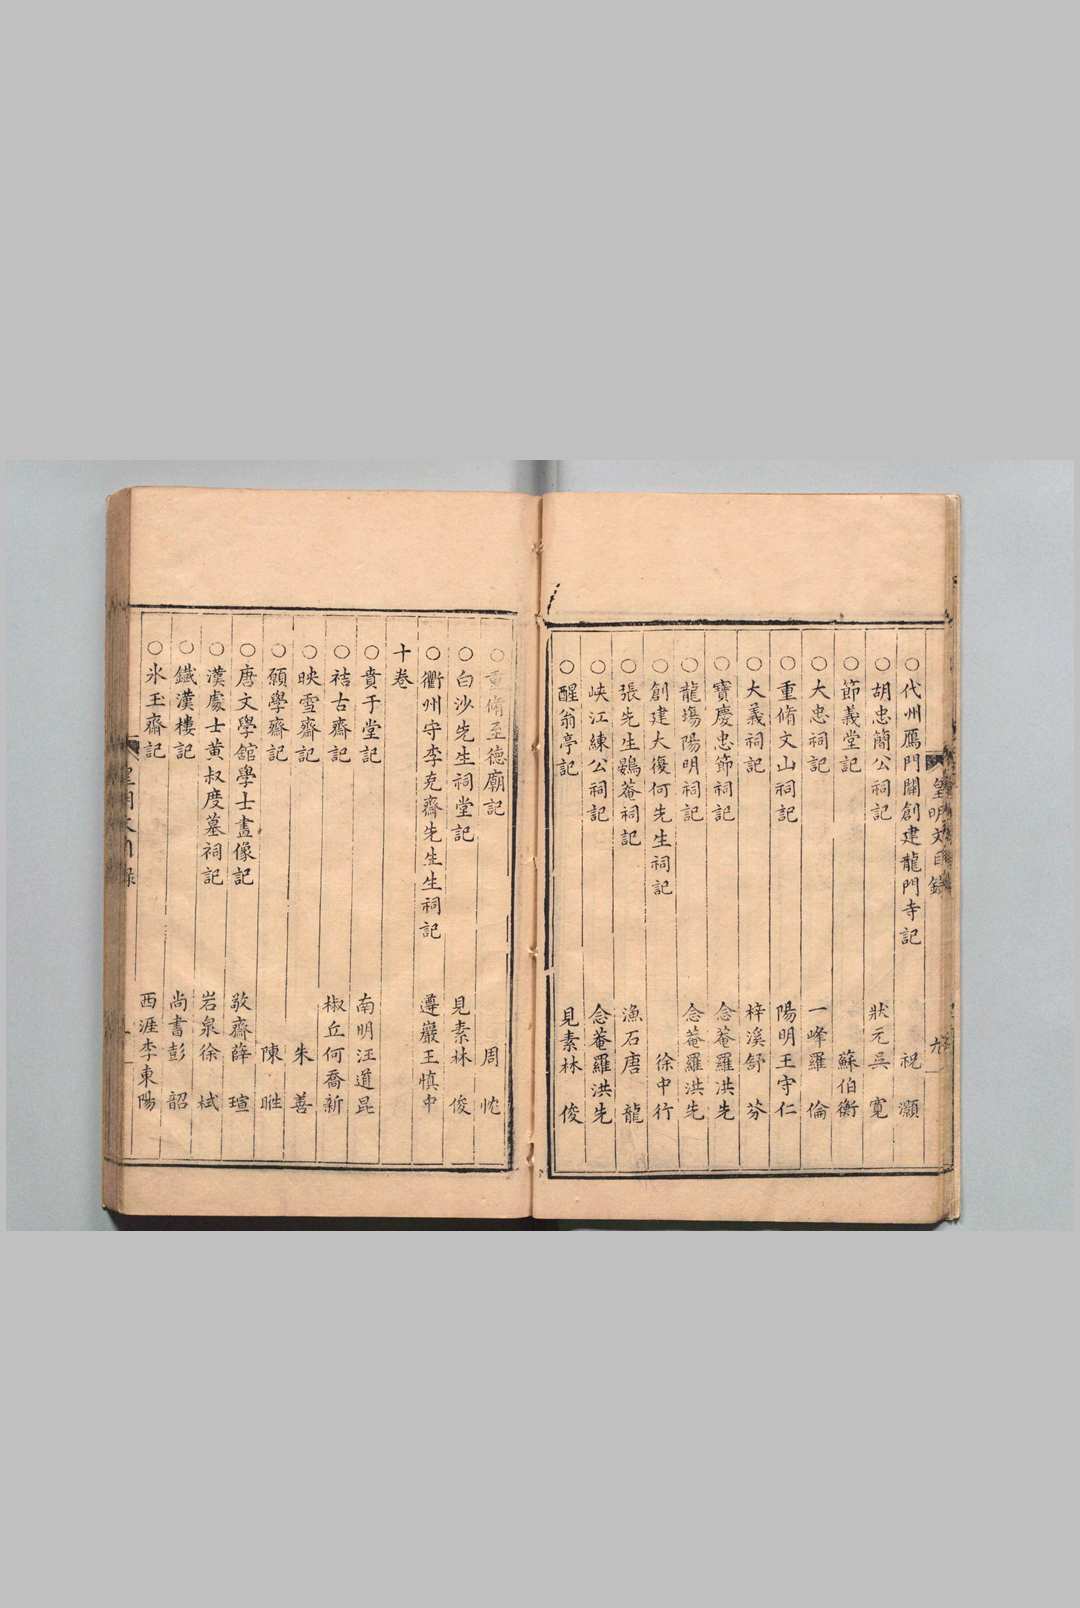 皇明文目錄
九
○代州鴈門關創建龍門寺記 祝灝
○胡忠簡公祠記 狀元吳寬
○節義堂記 蘇伯衡
○大忠祠記 一峰羅倫
○重脩文山祠記 陽明王守仁
○大義祠記 梓溪舒芬
○寶慶忠節祠記 念菴羅洪先
○龍塲陽明祠記 念菴羅洪先
○創建大復何先生祠記 徐中行
○張先生鷃菴祠記 漁石唐龍
○峽江練公祠記 念菴羅洪先
○醒翁亭記 見素林俊
○重脩至德廟記 周忱
○白沙先生祠堂記 見素林俊
○衢州守李克齋先生生祠記 遵巖王慎中
十卷
○賁于堂記 南明汪道昆
○祜古齋記 椒丘何喬新
○映雪齋記 朱善
○願學齋記 陳
○唐文學舘學士畫像記 敬齋薛瑄
○漢處士黃叔度墓祠記 岩泉徐栻
○鐵漢樓記 尚書彭韶
○氷玉齋記 西涯李東陽